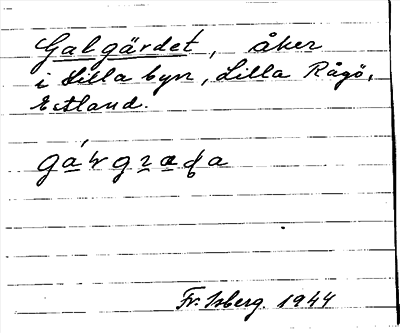 Galgärdet, åker
i Lilla byn, Lilla Rågö,
Estland.
Fr. Isberg 1944